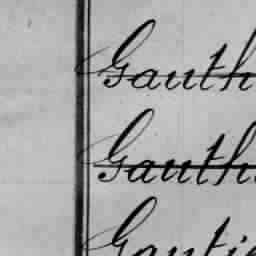 Gauth
Gauth
Gautie